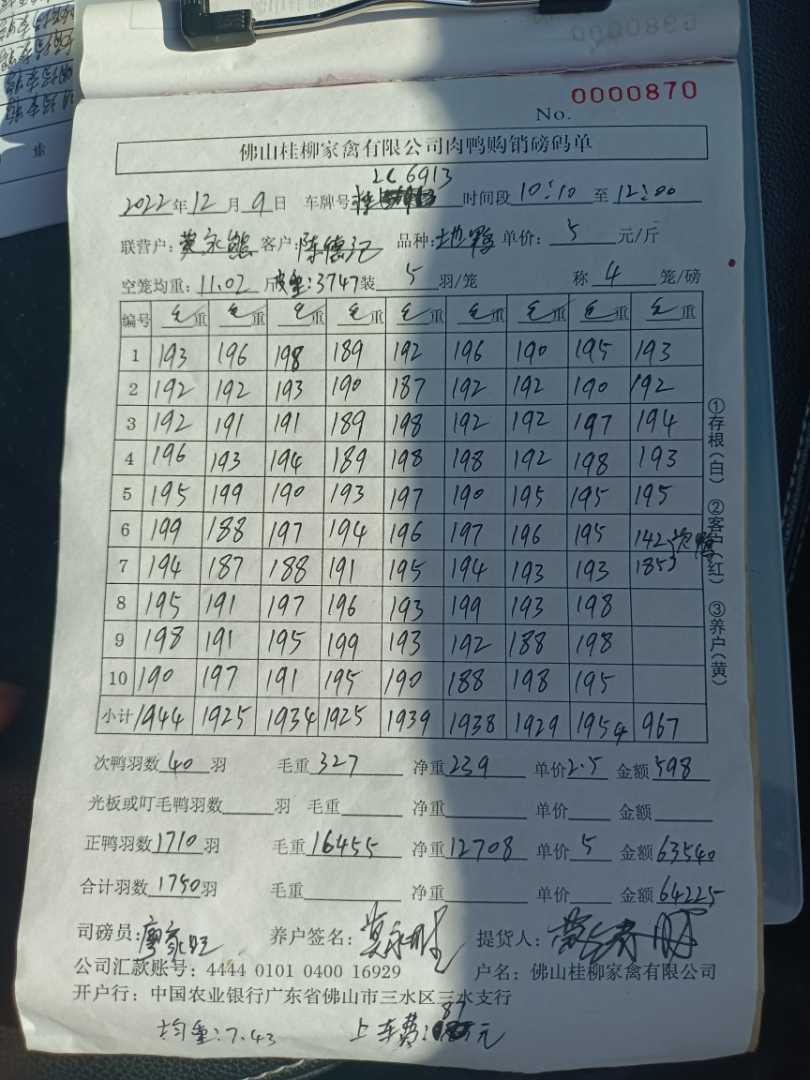 No. 0000870
佛山桂柳家禽有限公司肉鸭购销磅码单
2C6913
2022年12月9日 车牌号 时间段10:10至12:00
联营户:黄永能 客户:陈德记 品种:土鸭 单价:5元/斤
空笼均重:11.02斤 皮重:3747装5羽/笼 称4笼/磅
编号 毛重 毛重 毛重 毛重 毛重 毛重 毛重 毛重 毛重
1 193 196 198 189 192 196 190 195 193
2 192 192 193 190 187 192 192 190 192
3 192 191 191 189 198 192 192 197 194
4 196 193 194 189 198 198 192 198 193
5 195 199 190 193 197 190 195 195 195
6 199 188 197 194 196 197 196 195 142
7 194 187 188 191 195 194 193 193 185 次鸭
8 195 191 197 196 193 199 193 198
9 198 191 195 199 193 192 188 198
10 190 197 191 195 190 188 198 195
小计 1944 1925 1934 1925 1939 1938 1929 1954 967
①存根(白) ②客户(红) ③养户(黄)
次鸭羽数40羽 毛重327 净重239 单价2.5 金额598
光板或叮毛鸭羽数 羽 毛重 净重 单价 金额
正鸭羽数1710羽 毛重16455 净重12708 单价5 金额63540
合计羽数1750羽 毛重 净重 单价 金额64225
司磅员:廖家旺 养户签名: 提货人:
公司汇款账号:4444 0101 0400 16929 户名:佛山桂柳家禽有限公司
开户行:中国农业银行广东省佛山市三水区三水支行
均重:7.43 上车费:87元